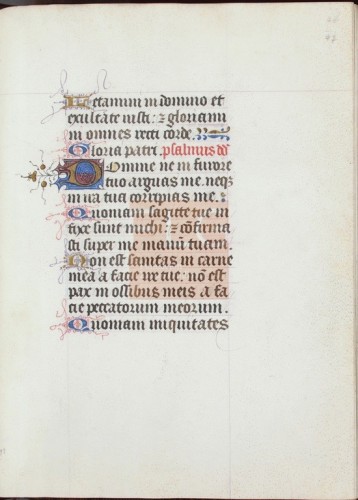 Letamini in domino et
exultate iusti: ⁊ gloriami
ni omnes recti corde.
Gloria patri. psalmus dd
Domine ne in furore
tuo arguas me. neqꝫ
in ira tua corripias me.
Quoniam sagitte tue in
fixe sunt michi: ⁊ cōfirma
sti super me manū tuam.
Non est sanitas in carne
mea a facie ire tue: nō est
pax in ossibus meis a fa
cie peccatorum meorum.
Quoniam iniquitates